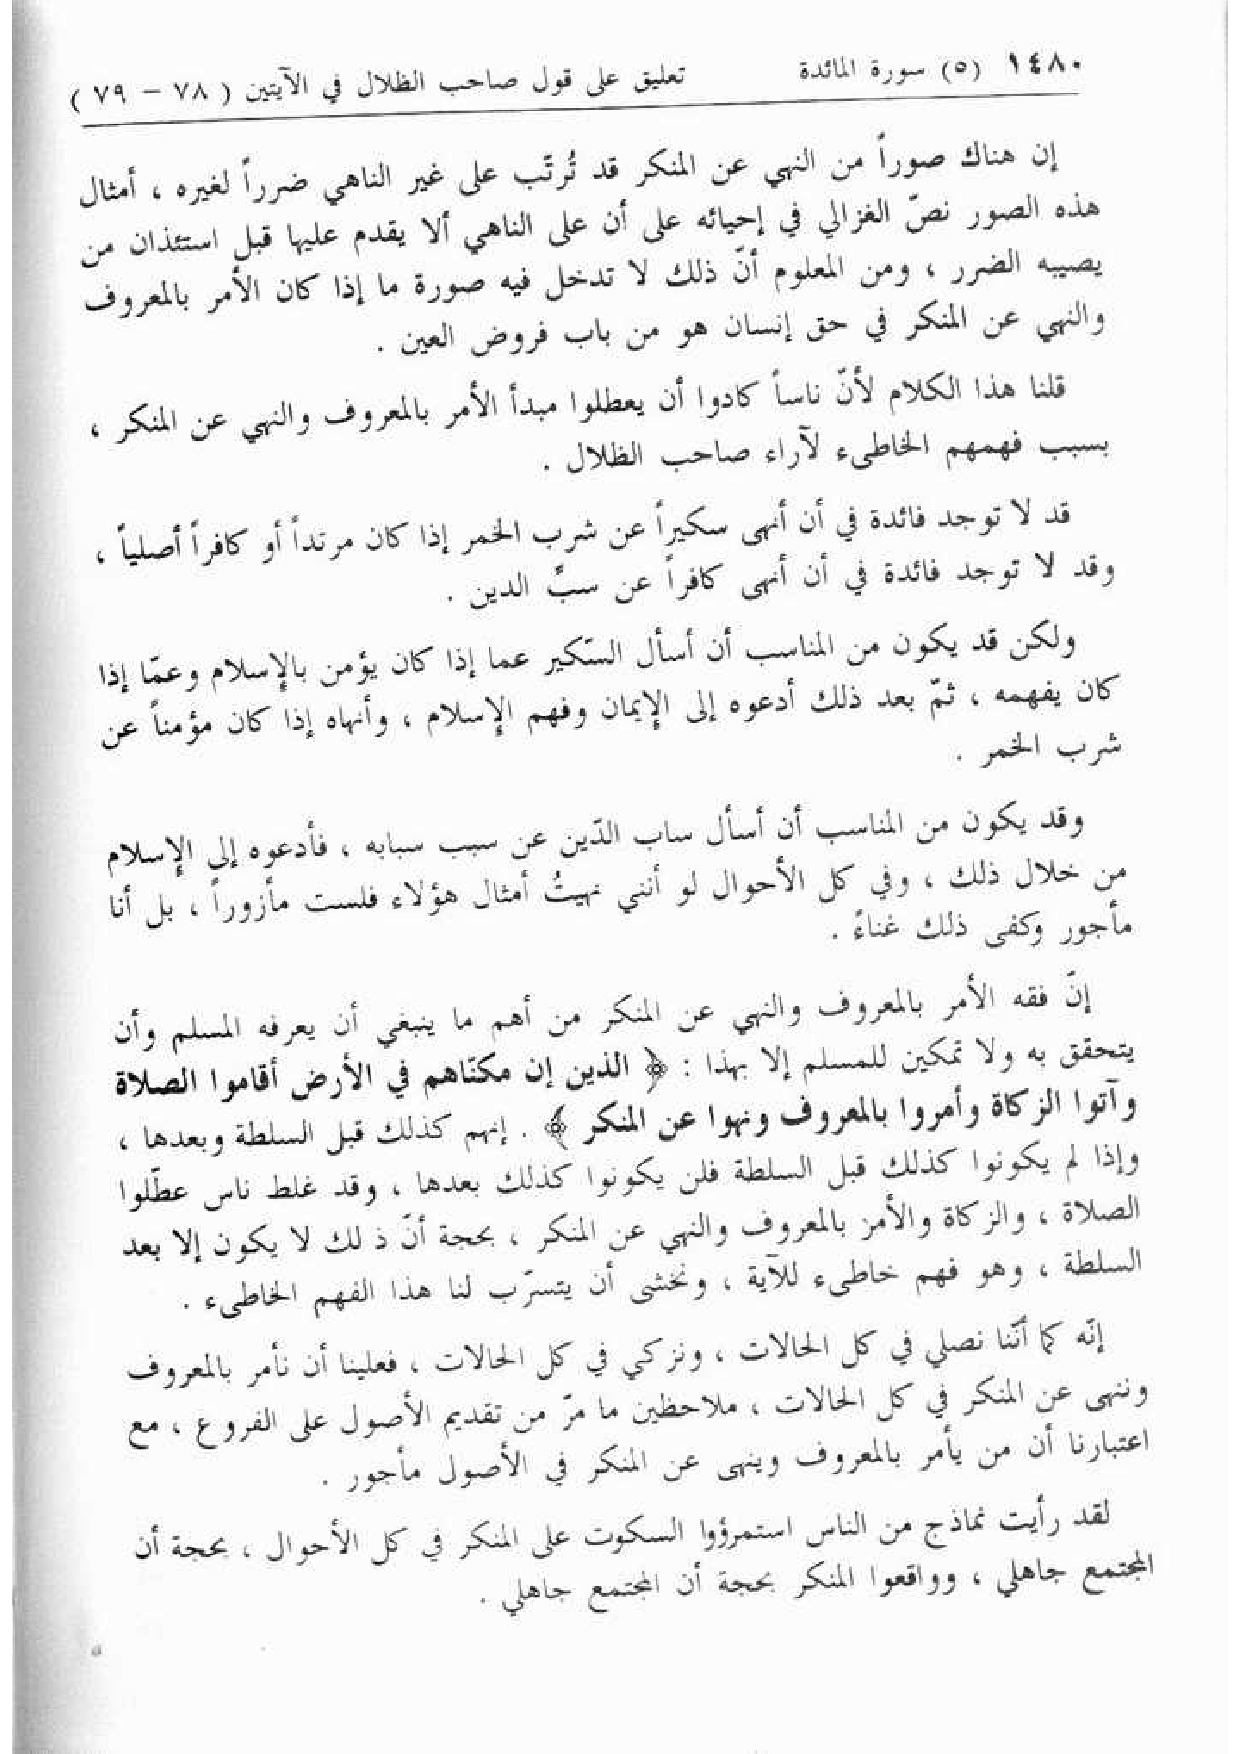 ١٤٨٠ (٥) سورة المائدة تعليق على قول صاحب الظلال في الآيتين ( ٧٨ - ٧٩ )
إن هناك صوراً من النهي عن المنكر قد تُرتّب على غير الناهي ضرراً لغيره ، أمثال
هذه الصور نصّ الغزالي في إحيائه على أن على الناهي ألا يقدم عليها قبل استئذان من
يصيبه الضرر ، ومن المعلوم أنّ ذلك لا تدخل فيه صورة ما إذا كان الأمر بالمعروف
والنهي عن المنكر في حق إنسان هو من باب فروض العين .
قلنا هذا الكلام لأنّ ناساً كادوا أن يعطلوا مبدأ الأمر بالمعروف والنهي عن المنكر ،
بسبب فهمهم الخاطىء لآراء صاحب الظلال .
قد لا توجد فائدة في أن أنهى سكيراً عن شرب الخمر إذا كان مرتداً أو كافراً أصلياً ،
وقد لا توجد فائدة في أن أنهى كافراً عن سبِّ الدين .
ولكن قد يكون من المناسب أن أسأل السّكير عما إذا كان يؤمن بالإسلام وعمّا إذا
كان يفهمه ، ثمّ بعد ذلك أدعوه إلى الإيمان وفهم الإسلام ، وأنهاه إذا كان مؤمناً عن
شرب الخمر .
وقد يكون من المناسب أن أسأل ساب الدّين عن سبب سبابه ، فأدعوه إلى الإسلام
من خلال ذلك ، وفي كل الأحوال لو أنني نهيتُ أمثال هؤلاء فلست مأزوراً ، بل أنا
مأجور وكفى ذلك غناءً .
إنّ فقه الأمر بالمعروف والنهي عن المنكر من أهم ما ينبغي أن يعرفه المسلم وأن
يتحقق به ولا تمكين للمسلم إلا بهذا : ﴿ الذين إن مكنّاهم في الأرض أقاموا الصلاة
وآتوا الزكاة وأمروا بالمعروف ونهوا عن المنكر ﴾ . إنهم كذلك قبل السلطة وبعدها ،
وإذا لم يكونوا كذلك قبل السلطة فلن يكونوا كذلك بعدها ، وقد غلط ناس عطّلوا
الصلاة ، والزكاة والأمر بالمعروف والنهي عن المنكر ، بحجة أنّ ذلك لا يكون إلا بعد
السلطة ، وهو فهم خاطىء للآية ، ونخشى أن يتسرّب لنا هذا الفهم الخاطىء .
إنّه كما أنّنا نصلي في كل الحالات ، ونزكي في كل الحالات ، فعلينا أن نأمر بالمعروف
وننهى عن المنكر في كل الحالات ، ملاحظين ما مرّ من تقديم الأصول على الفروع ، مع
اعتبارنا أن من يأمر بالمعروف وينهى عن المنكر في الأصول مأجور .
لقد رأيت نماذج من الناس استمرؤوا السكوت على المنكر في كل الأحوال ، بحجة أن
المجتمع جاهلي ، وواقعوا المنكر بحجة أن المجتمع جاهلي .